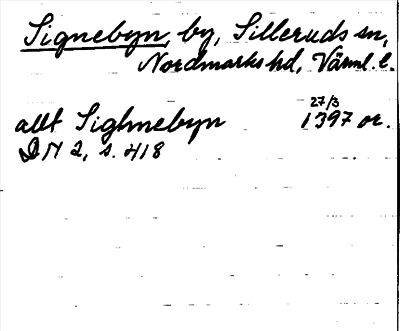 Signebyn, by, Silleruds sn,
Nordmarks hd, Värml. l.
27/3
allt Sighnebyn 1397 or.
DN 2, s. 418